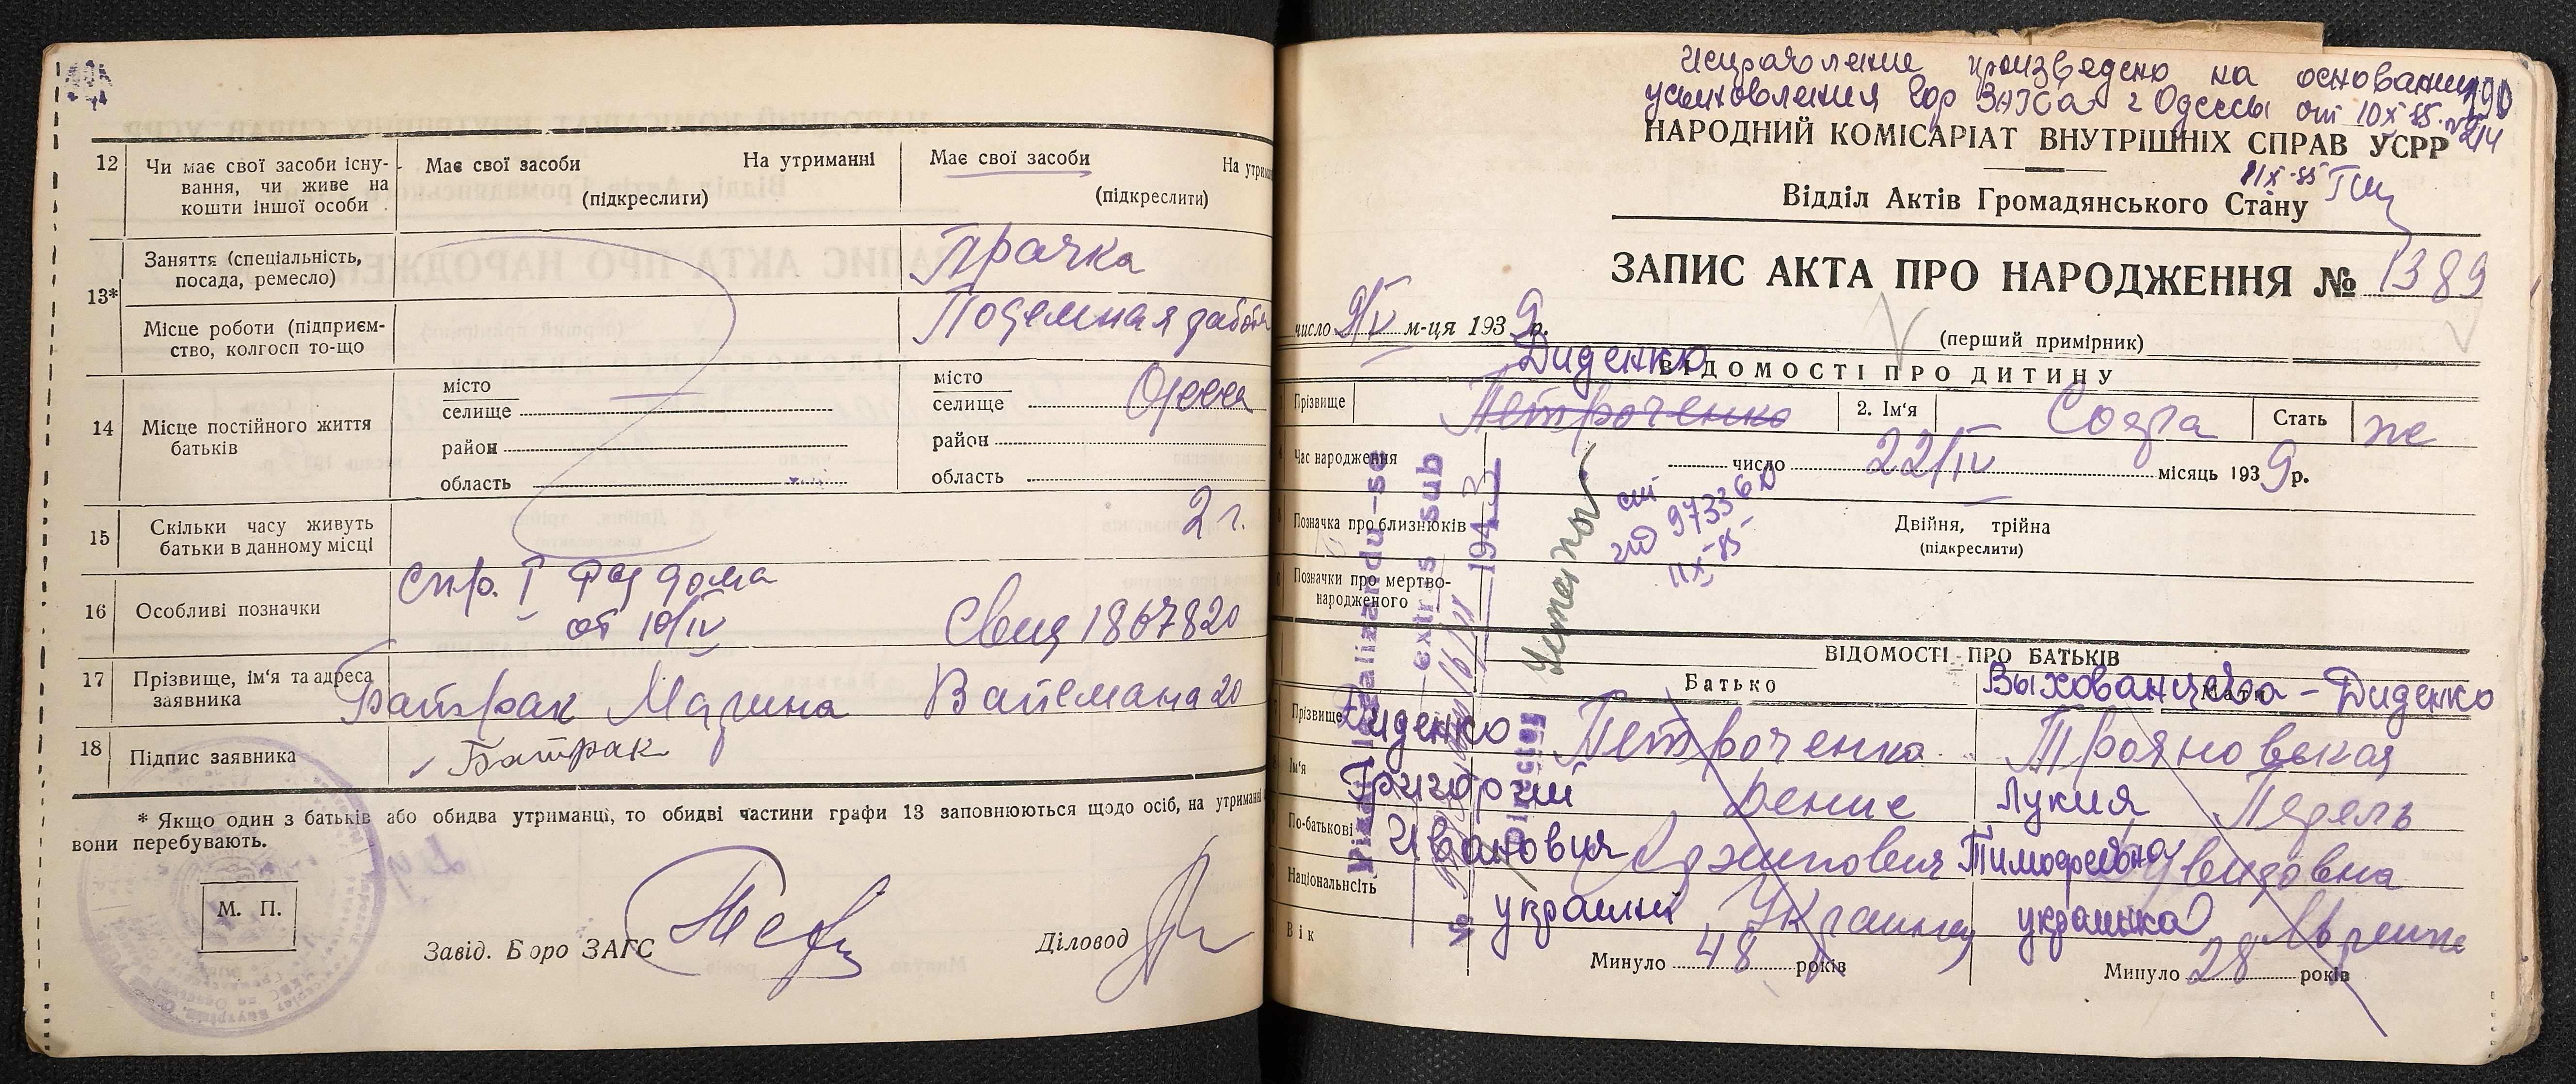 12 Чи має свої засоби існу-
вання, чи живе на
кошти іншої особи
Має свої засоби На утриманні
(підкреслити)
Має свої засоби На утрим
(підкреслити)
13* Заняття (спеціальність,
посада, ремесло)
Прачка
Місце роботи (підприєм-
ство, колгосп то-що
Поденная работа
14 Місце постійного життя
батьків
місто
селище
район
область
місто
селище Одесса
район
область
15 Скільки часу живуть
батьки в данному місці
2 г.
16 Особливі позначки
Спр. I дома
от 10/IV Свид 1867820
17 Прізвище, ім'я та адреса
заявника
Батрак Марина 20
18 Підпис заявника
Батрак
* Якщо один з батьків або обидва утриманці, то обидві частини графи 13 заповнюються щодо осіб, на утриманні
вони перебувають.
М. П.
Завід. Бюро ЗАГС
Діловод
Исправление произведено на основании 190
усыновления Гор ЗАГСа г Одессы от 10 X 55. № 214
НАРОДНИЙ КОМІСАРІАТ ВНУТРІШНІХ СПРАВ УСРР
11 X-55
Відділ Актів Громадянського Стану
ЗАПИС АКТА ПРО НАРОДЖЕННЯ № 1389
число 9/V м-ця 1939 р.
(перший примірник)
Диденко
ВІДОМОСТІ ПРО ДИТИНУ
Прізвище Петроченко 2. Ім'я Софа Стать же
Час народження число 22/IV місяць 1939 р.
Позначка про близнюків
Двійня, трійна
(підкреслити)
97336
11 X-55
Позначки про мертво-
народженого
legalizandu-se
extras sub
1943
Director
ВІДОМОСТІ ПРО БАТЬКІВ
Батько
Мати
Выхованцева-Диденко
Прізвище Диденко Петроченко Трояновская
Ім'я Григорий Денис Лукия
По-батькові Иванович Тимофеевна
Національність украинец Украинец украинка
Вік
Минуло 48 років
Минуло 28 років